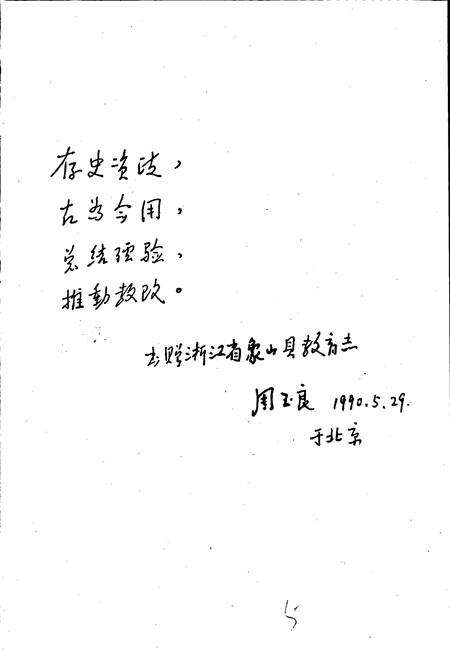 存史资政，
古为今用，
总结经验，
推動教改。
书赠浙江省象山县教育志
周玉良 1990.5.29.
于北京
5